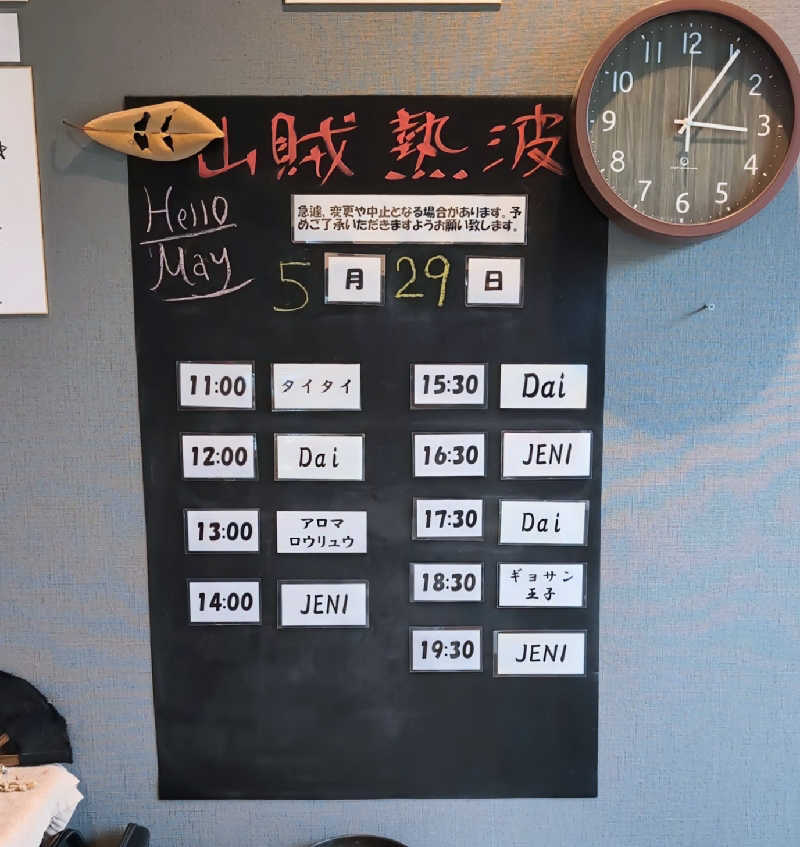 山賊 熱波
Hello
May
急遽、変更や中止となる場合があります。予
めご了承いただきますようお願い致します。
5月29日
11:00 タイタイ
12:00 Dai
13:00 アロマ
ロウリュウ
14:00 JENI
15:30 Dai
16:30 JENI
17:30 Dai
18:30 ギョサン
王子
19:30 JENI
12
1
2
3
4
5
6
7
8
9
10
11